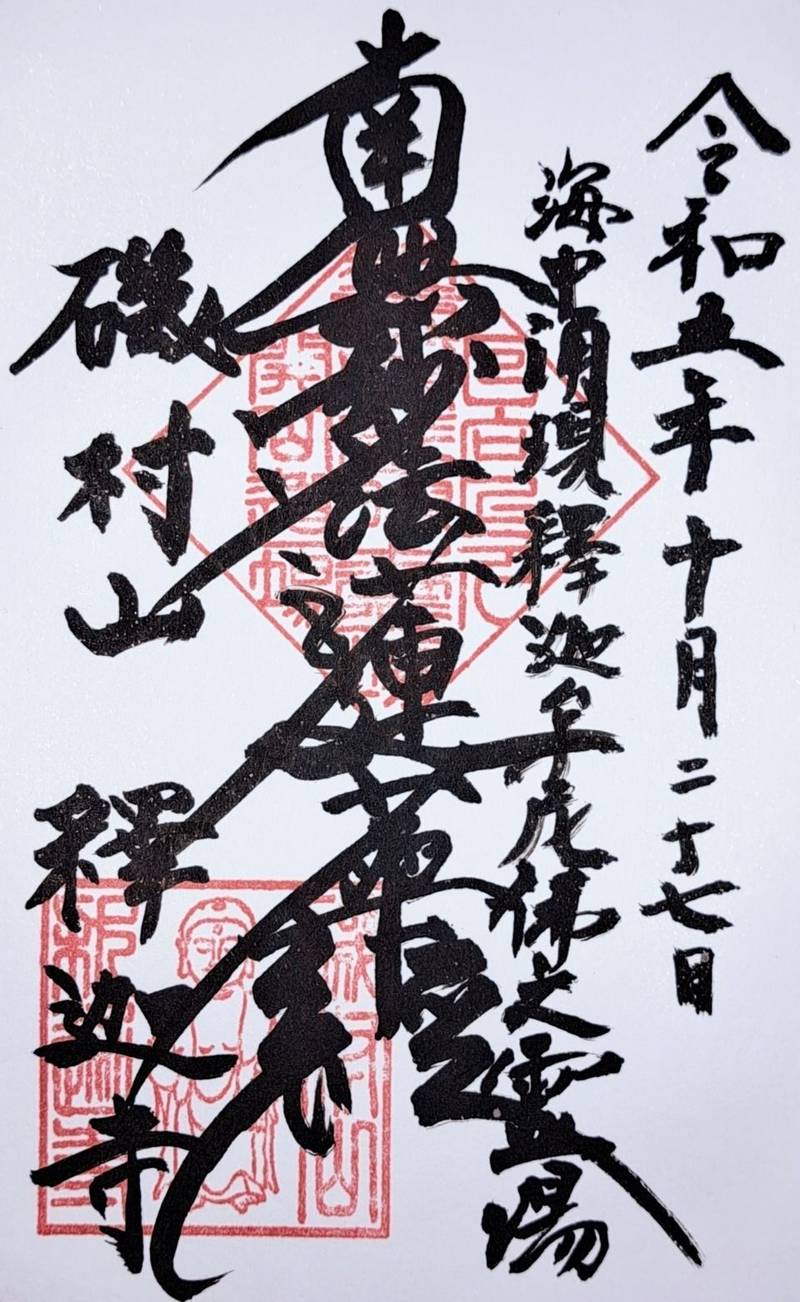 令和五年十月二十七日
海中涌現釋迦牟尼佛之霊場
南無妙法蓮華経
磯村山
釋迦寺